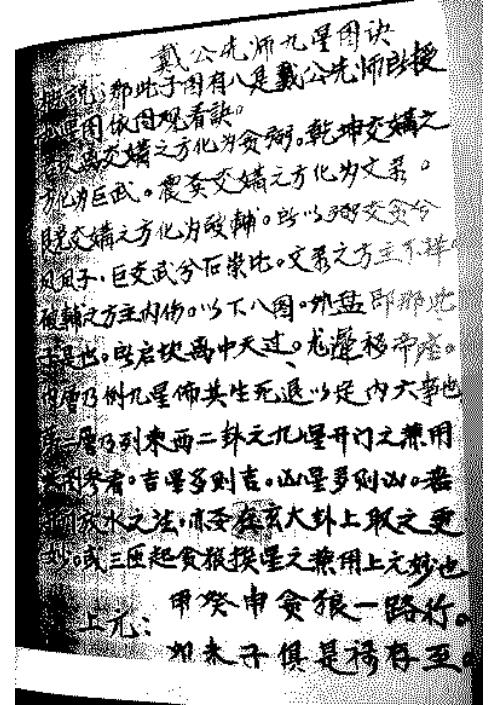 戴公先师九星图诀
概说：那此子图有八是戴公先师所授
星图依图观看诀。
离交媾之方化为贪弼。乾坤交媾之
方化为巨武。震巽交媾之方化为文录。
兑交媾之方化为破輔。所以弼交贪兮
凤凰子，巨交武兮石崇比。文录之方主不祥。
破輔之方主内伤。以下八图。外盘即那此
子是也。所启坎离中天过、龙墀移帝座。
内層乃例九星佈其生死退以定内六事也
第二層乃列東西二卦之九星开门之兼用
参看。吉星多则吉。凶星多则凶。若
放水之法，亦至在玄大卦上取之更
妙。或三匝起贪狼挨星之兼用上元妙也
上元：甲癸申贪狼一路行。
未子俱是禄存至。